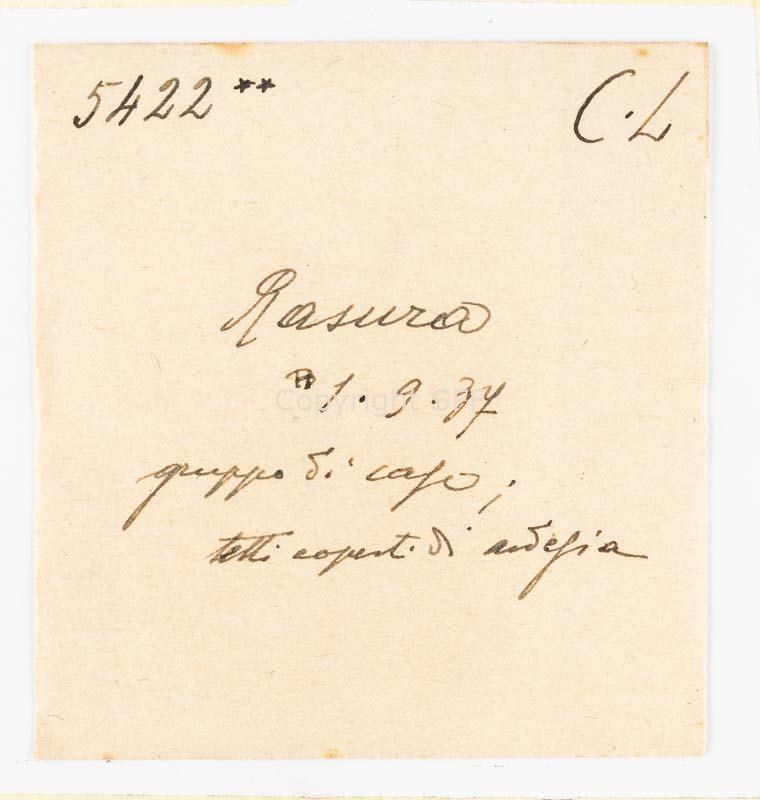 5422 **
C.L
Rasura
1.9.37
gruppo di case;
tetti coperti di ardesia
Copyright